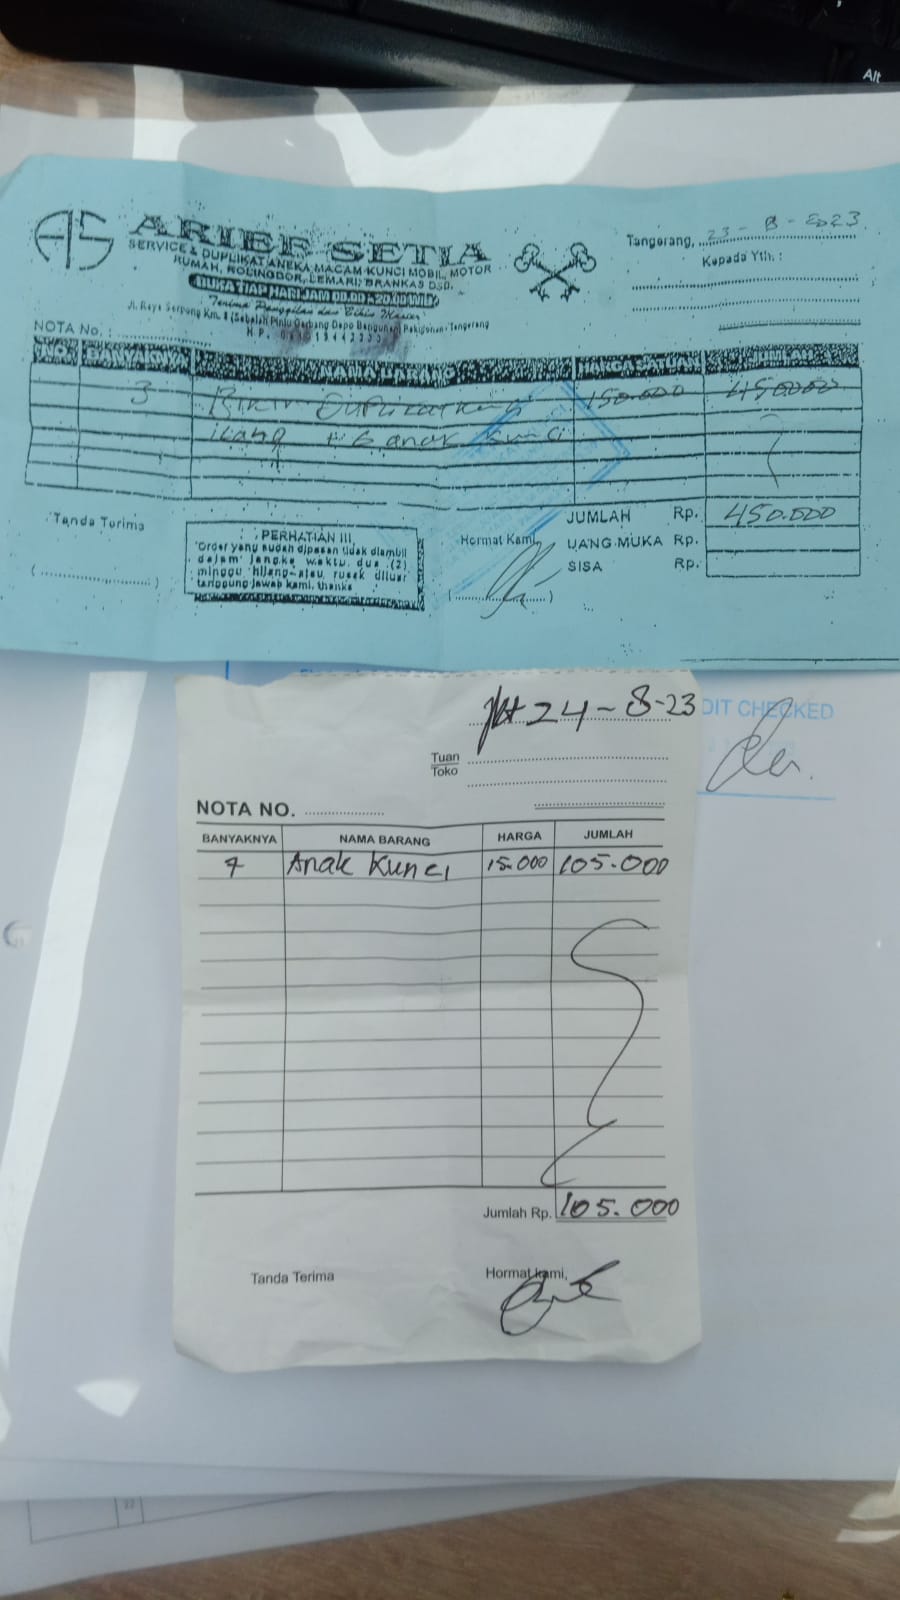 Alt
AS
ARIEF SETIA
SERVICE & DUPLIKAT ANEKA MACAM KUNCI MOBIL, MOTOR
RUMAH, ROLINGDOR, LEMARI, BRANKAS DSB.
BUKA TIAP HARI JAM
Terima Panggilan dan
Jl. Raya Serpong Km. 8 (Sebelah Pintu Gerbang Depo Bangunan) Pakigunan Tangerang
H.P.
Tangerang, 23 - 8 - 2023
Kepada Yth. :
NOTA No. :
NO. BANYAKNYA NAMA HARGA SATUAN JUMLAH
3 Bikin Duplikat Kunci 150.000 450.000
ilang + 6 anak kunci
Tanda Terima
PERHATIAN !!!
Order yang sudah dipesan tidak diambil
dalam jangka waktu dua (2)
minggu hilang atau rusak diluar
tanggung jawab kami, thanks
Hormat Kami,
JUMLAH Rp. 450.000
UANG MUKA Rp.
SISA Rp.
DIT CHECKED
Jkt 24-8-23
Tuan
Toko
NOTA NO.
BANYAKNYA NAMA BARANG HARGA JUMLAH
7 Anak Kunci 15.000 105.000
Jumlah Rp. 105.000
Tanda Terima
Hormat kami,
22